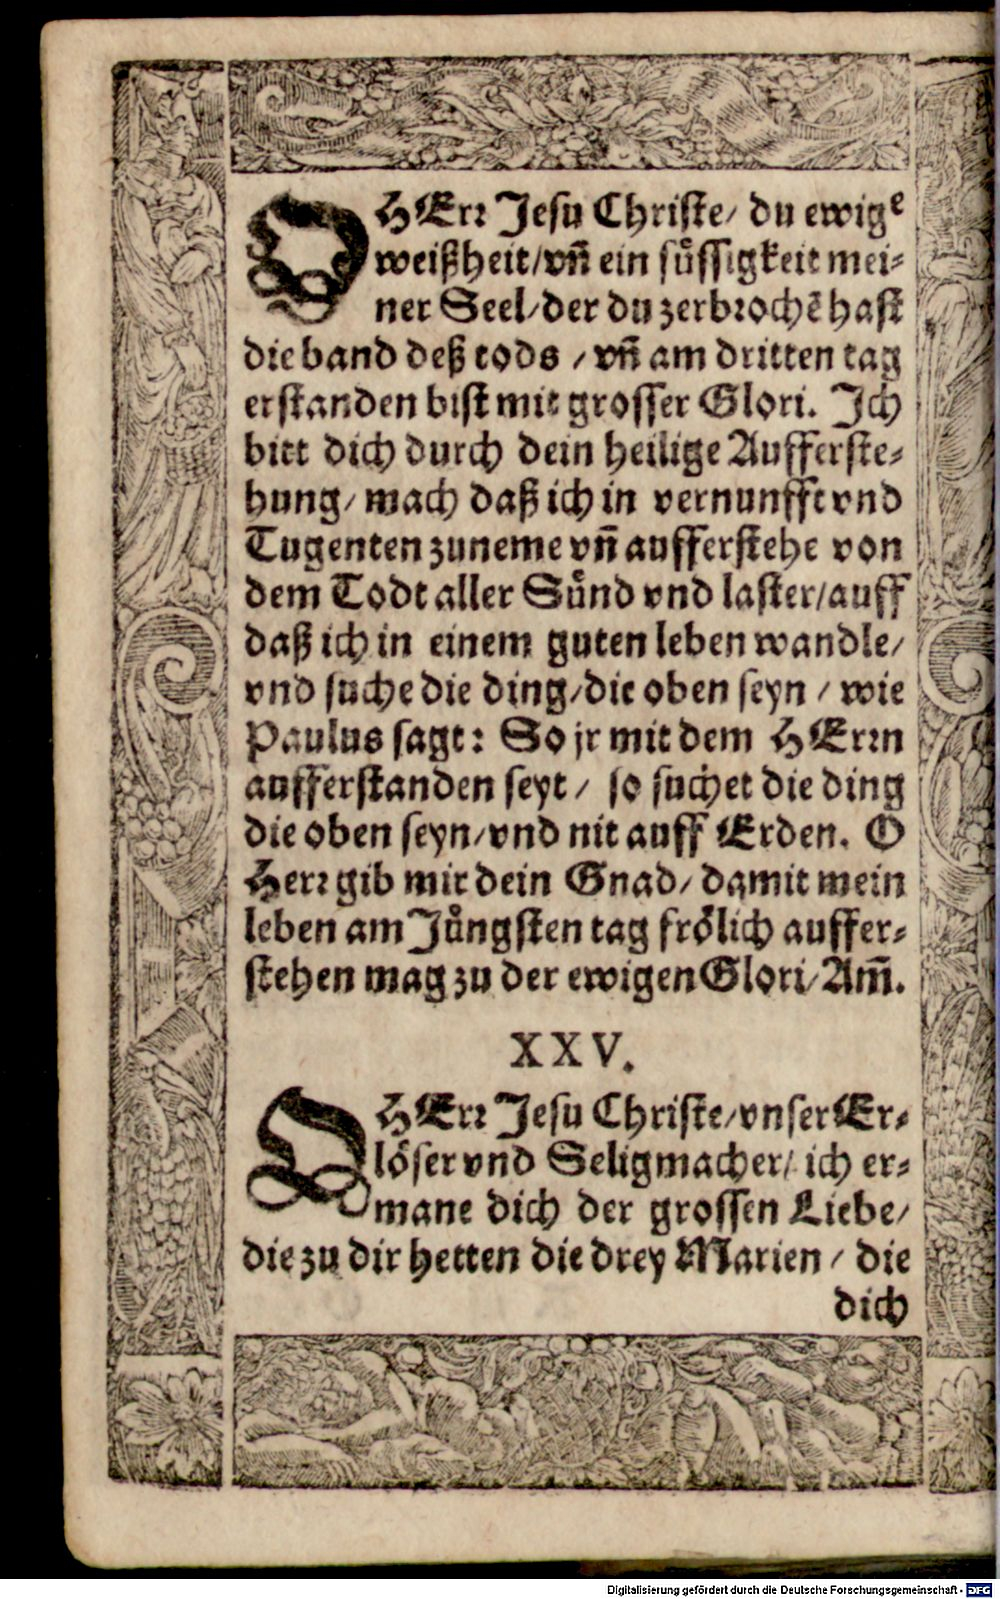 O HErr Jesu Christe/ du ewigͤ
weißheit/vñ ein suͤssigkeit mei⸗
ner Seel/der du zerbrochẽ hast
die band deß tods / vñ am dritten tag
erstanden bist mit grosser Glori. Jch
bitt dich durch dein heilige Aufferste⸗
hung/ mach daß ich in vernunfft vnd
Tugenten zuneme vñ aufferstehe von
dem Todt aller Suͤnd vnd laster/auff
daß ich in einem guten leben wandle/
vnd suche die ding/die oben seyn / wie
Paulus sagt: So jr mit dem HErrn
aufferstanden seyt / so suchet die ding
die oben seyn/vnd nit auff Erden. O
Herr gib mir dein Gnad/ damit mein
leben am Juͤngsten tag froͤlich auffer⸗
stehen mag zu der ewigen Glori/ Am̃.
XXV.
O HErr Jesu Christe/vnser Er⸗
loͤser vnd Seligmacher/ ich er⸗
mane dich der grossen Liebe/
die zu dir hetten die drey Marien / die
dich
Digitalisierung gefördert durch die Deutsche Forschungsgemeinschaft - DFG